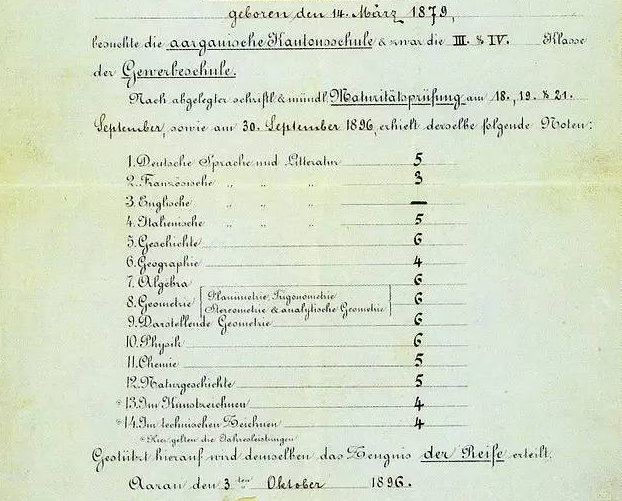 geboren den 14. März 1879,
besuchte die aargauische Kantonsschule & zwar die III. & IV. Klasse
der Gewerbeschule.
Nach abgelegter schriftl. & mündl. Maturitätsprüfung am 18., 19. & 21.
September, sowie am 30. September 1896, erhielt derselbe folgende Noten:
1. Deutsche Sprache und Litteratur 5
2. Französische „ „ „ 3
3. Englische „ „ „ —
4. Italienische „ „ „ 5
5. Geschichte 6
6. Geographie 4
7. Algebra 6
8. Geometrie [Planimetrie, Trigonometrie 6
Stereometrie & analytische Geometrie]
9. Darstellende Geometrie 6
10. Physik 6
11. Chemie 5
12. Naturgeschichte 5
*13. Im Kunstzeichnen 4
*14. Im technischen Zeichnen 4
*Hier gelten die Jahresleistungen
Gestützt hierauf wird demselben das Zeugnis der Reife erteilt.
Aarau den 3ten Oktober 1896.